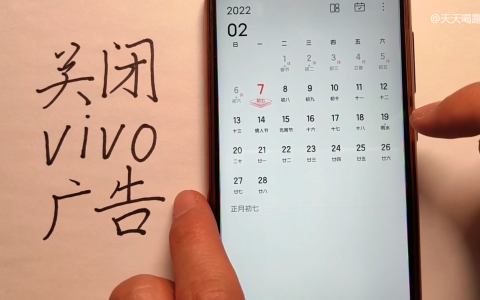 @天天喝露
关闭
vivo
广告
2022
02
日 一 二 三 四 五 六
1 2 3 4 5
初二 初三
6 7 8 9 10 11 12
初六 初七 初八 初九 初十 十一 十二
13 14 15 16 17 18 19
十三 情人节 元宵节 十六 十七 十八 雨水
20 21 22 23 24 25 26
二十 廿一 廿二 廿三 廿四 廿五 廿六
27 28
廿七 廿八
正月初七